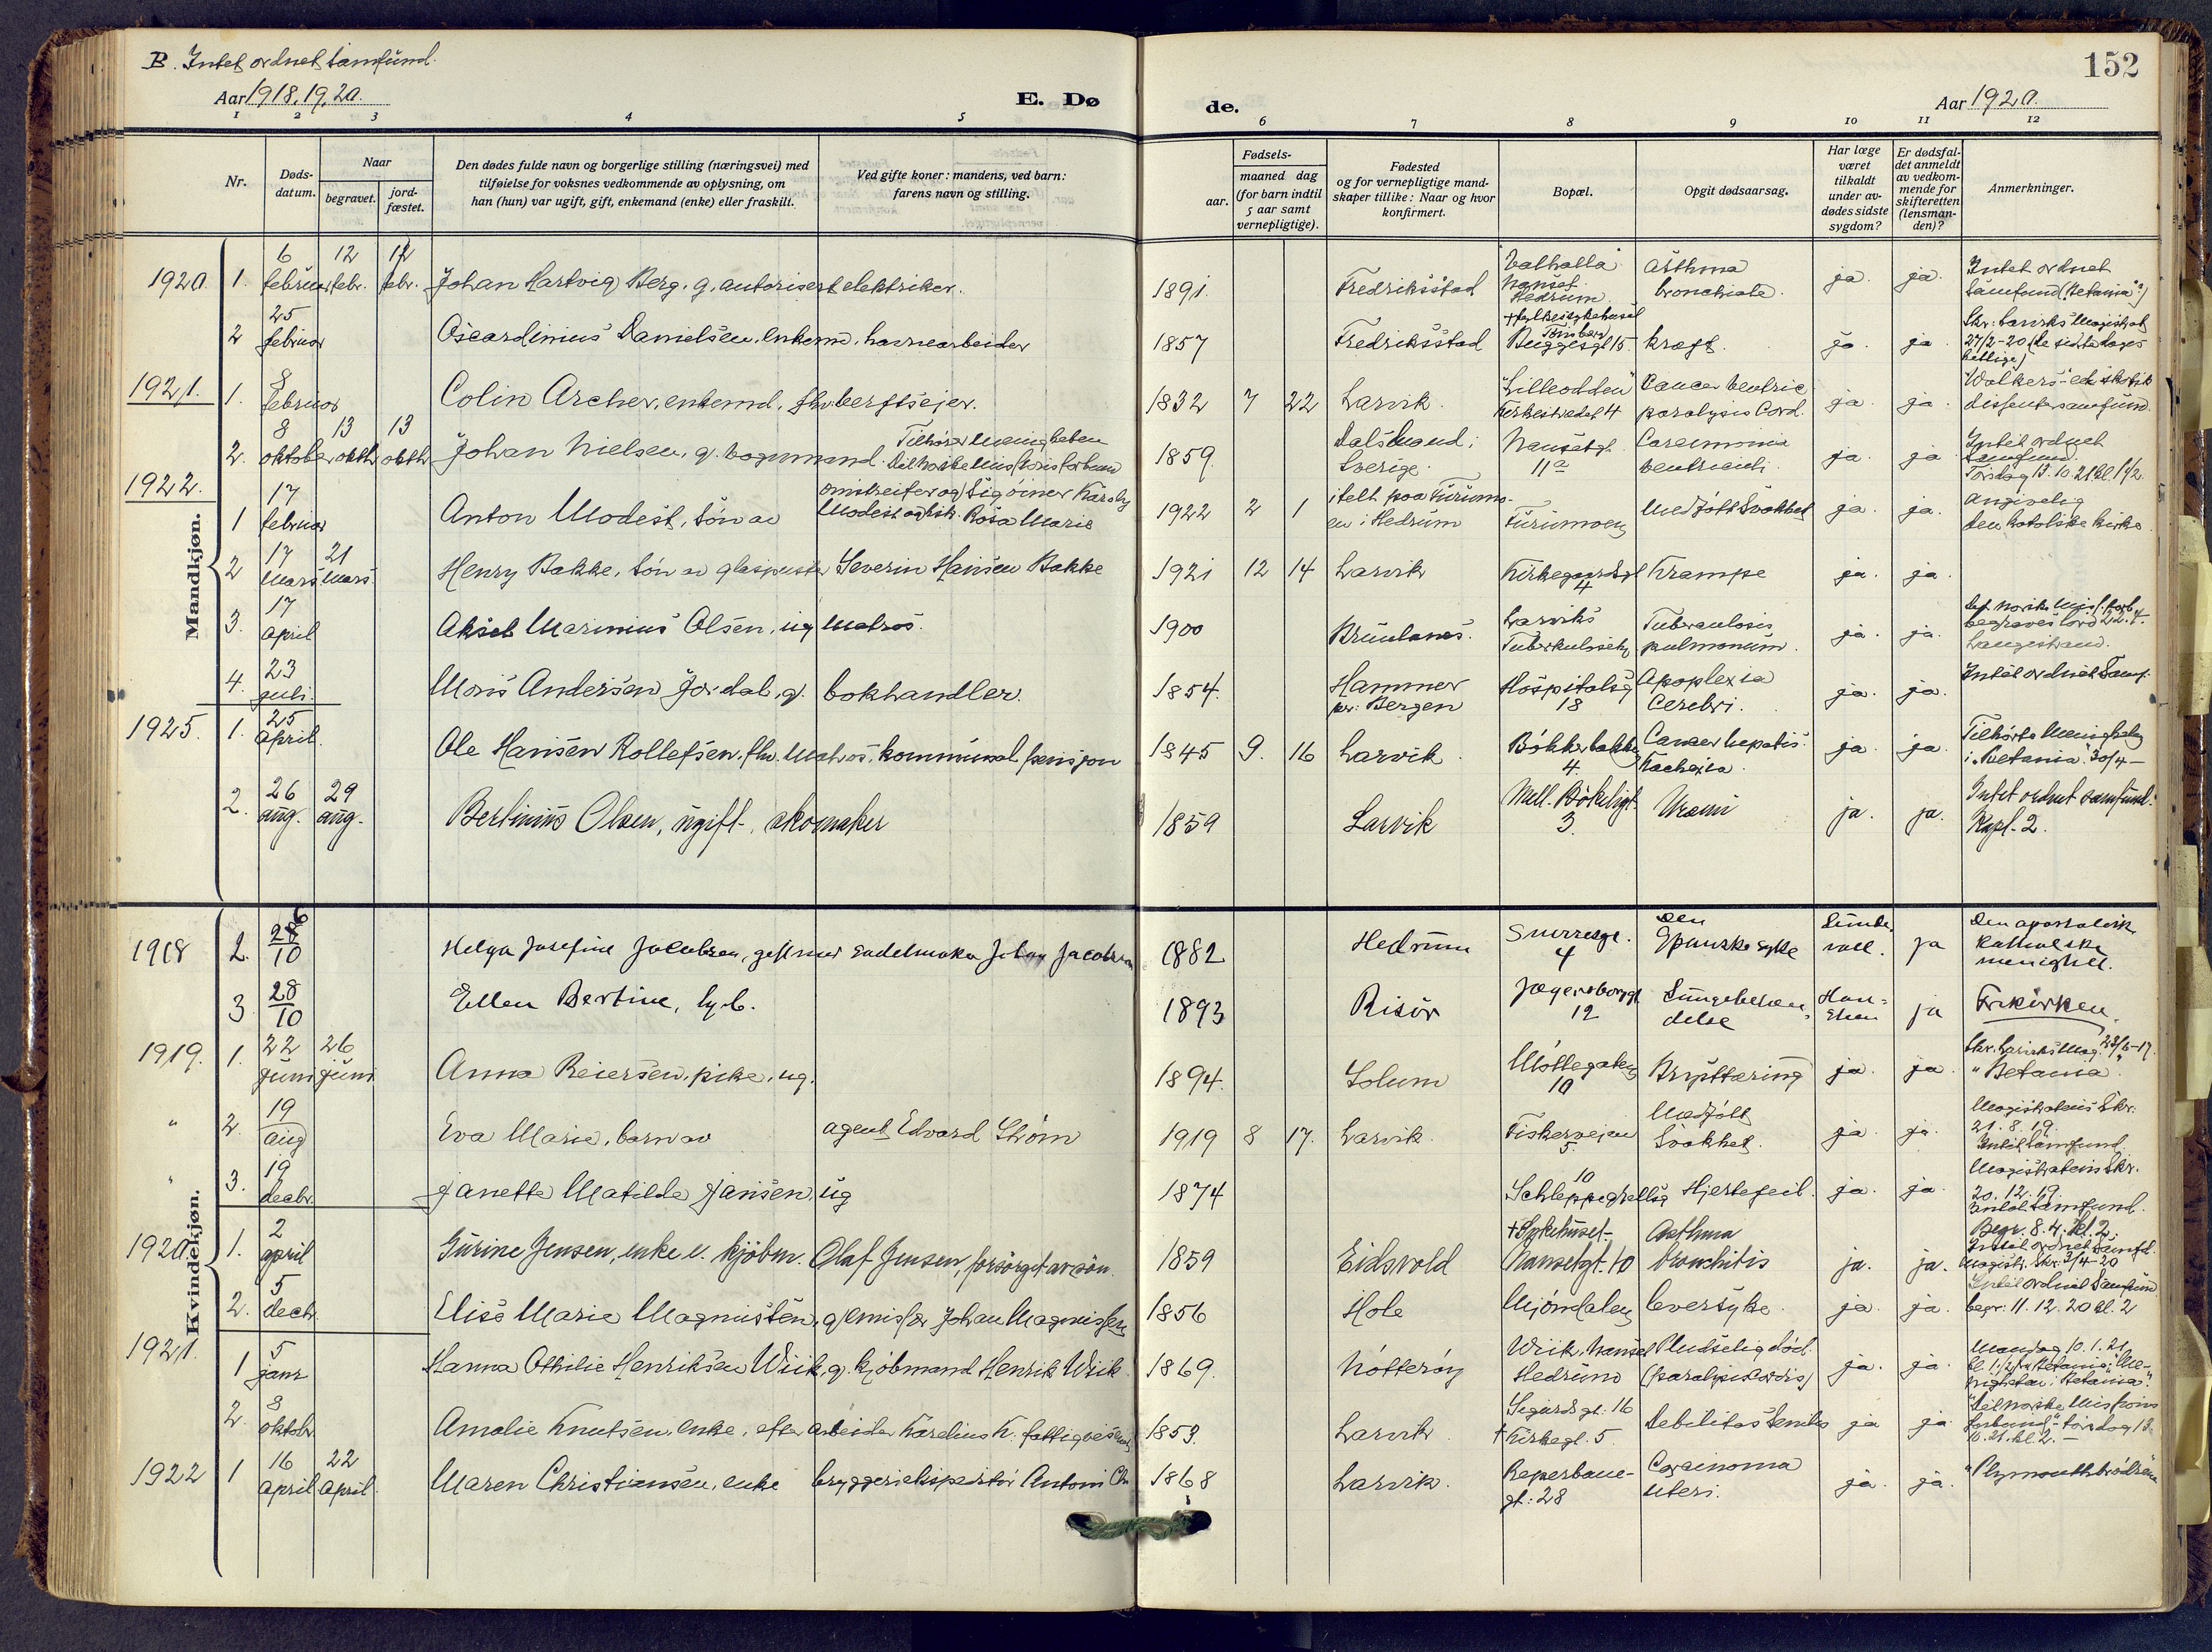 B. Intet ordnet samfund.
Aar 1918, 19, 20.
E. Dø
de.
Aar 1920.
152
1 2 3 4 5 6 7 8 9 10 11 12
Nr.
Døds-
datum.
Naar
begravet.
jord-
fæstet.
Den dødes fulde navn og borgerlige stilling (næringsvei) med
tilføielse for voksnes vedkommende av oplysning, om
han (hun) var ugift, gift, enkemand (enke) eller fraskilt.
Ved gifte koner: mandens, ved barn:
farens navn og stilling.
Fødsels-
aar.
maaned dag
(for barn indtil
5 aar samt
vernepligtige).
Fødested
og for vernepligtige mand-
skaper tillike: Naar og hvor
konfirmert.
Bopæl.
Opgit dødsaarsag.
Har læge
været
tilkaldt
under av-
dødes sidste
sygdom?
Er dødsfal-
det anmeldt
av vedkom-
mende for
skifteretten
(lensman-
den)?
Anmerkninger.
Mandkjøn.
1920 1. 6 februar 12 febr. 12 febr. Johan Hartvig Berg, g. autorisert elektriker. 1891. Fredriksstad Valhalla Nanset Hedrum Asthma bronchiale. ja. ja. Intet ordnet Samfund ("Betania")
2 25 februar Oscardinius Danielsen, enkem, havnearbeider 1857 Fredriksstad Buggesgt 15. kræft. ja. ja Skr: Larviks Magistrat 27/2-20 (de sidste dages hellige)
1921. 1. 8 februar Colin Archer, enkemd. fhv. verftseier. 1832 7 22 Larvik. "Lilleodden" Kirkestredet 4 Cancer ventric paralysis Cord. ja. ja. "Walkers" dissentersamfund.
2. 8 oktober 13 oktbr 13 oktbr Johan Nielsen, g. vognmand. Tilhører Menigheten Det norske Misjonsforbund 1859. Dalsland i Sverige. Nansetgt. 11a Carcinomia ventriculi. ja. ja Intet ordnet Samfund. Torsdag 13.10.21 kl. 1 1/2.
1922. 1 17 februar Anton Modest, søn av omstreifer og Sigøiner Karoly Modest og Rosa Marie 1922 2 1 i telt paa Furumoen i Hedrum Furumoen Medfødt Svakhet ja. ja. Angivelig den katolske kirke.
2 17 Mars 21 Mars Henry Bakke, søn av glaspuster Severin Hansen Bakke 1921 12 14 Larvik Kirkegaardsgt 4 Krampe ja. ja.
3. 17 april Aksel Marinius Olsen, ug matros. 1900 Brunlanes. Larviks Tuberkulosehj Tuberculosis pulmonum. ja. ja. Det norske Misj. forb. begraves lørd 22.4. Langestrand.
4. 23 juli. Mons Andersen Jordal, g. bokhandler. 1854. Hammer pr. Bergen Hospitalsg 18 Apoplexia Cerebri. ja. ja. Intet ordnet Samf.
1925. 1. 25 april. Ole Hansen Rollefsen, fhv. Matros, kommunal pensjon 1845 9. 16 Larvik. Bökkerbakken 4. Cancer hepatis. Kachexia. ja. ja. Tilhørte Menigheten i "Betania". 30/4 –
2. 26 aug. 29 aug. Bertinius Olsen, ugift, skomaker 1859 Larvik Mell. Bökeligt. 3. Uræmi ja. ja. Intet ordnet samfund. Kapl. 2.
Kvindekjøn.
1918 2. 28/10 Helga Josefine Jacobsen, gift med Sadelmaker Johan Jacobsen 1882 Hedrum Snorresgt. 4 Den Spanske syke Sunde-voll. ja Den apostolisk katholske menighet.
3 28/10 Ellen Bertine, 1893 Risör Jægersborggt 12 Lungebetæn-delse Han-shen ja Frikirken.
1919. 1. 22 juni 26 juni Anna Reiersen, pike, ug. 1894. Solum Möllegaten 10 Brysttæring ja. ja. Skr. Larviks Mag. 23/6-19. "Betania".
" 2. 19 aug Eva Marie, barn av agent Edvard Strøm 1919 8 17. Larvik. Fiskerveien 5. Medfødt Svakhet. ja. ja. Magistratens Skr. 21.8.19. Intet Samfund.
" 3. 19 decbr. Janette Matilde Jansen, ug 1874 Schleppegrellsg 10 Hjertefeil. ja. ja. Magistratens Skr. 20.12.19. Intet Samfund.
1920. 1. 2 april Gurine Jensen, enke e. kjöbm. Olaf Jensen, forsörget av sön. 1859 Eidsvold † Sykehuset – Nansetgt. 10 Asthma bronchitis ja. ja. Begr. 8.4. kl. 2. Intet ordnet Samfd. Magistr. Skr. 3/4-20
2. 5 decbr. Elise Marie Magnussen, g. emissær Johan Magnussen 1856 Hole Mjöndalen leversyke. ja. ja. Intet ordnet Samfund begr. 11.12.20 kl. 2
1921. 1 5 janr Hanna Othilie Henriksen Wiik, g. kjöbmand Henrik Wiik 1869. Nötteröy Wiik. Nanset Hedrum Pludselig död (paralysis cordis) ja. ja. Mandag 10.1.21 kl. 1 1/2 fra Betania. "Menigheten i Betania".
2. 8 oktobr Amalie Knutsen, enke, efter arbeider Karelius K. fattigvesenet 1853. Larvik. Sigurdsgt. 16 † Kirkegt. 5. Debilitas senilis ja ja "Det norske Misjons forbund" – torsdag 13. 10.21. kl. 2. –
1922 1 16 april 22 april. Maren Christiansen, enke bryggeriekspeditör Antoni Chr 1868 Larvik. Reperbane-gt: 28 Carcinoma uteri. ja. ja. "Plymouthbrödrene"